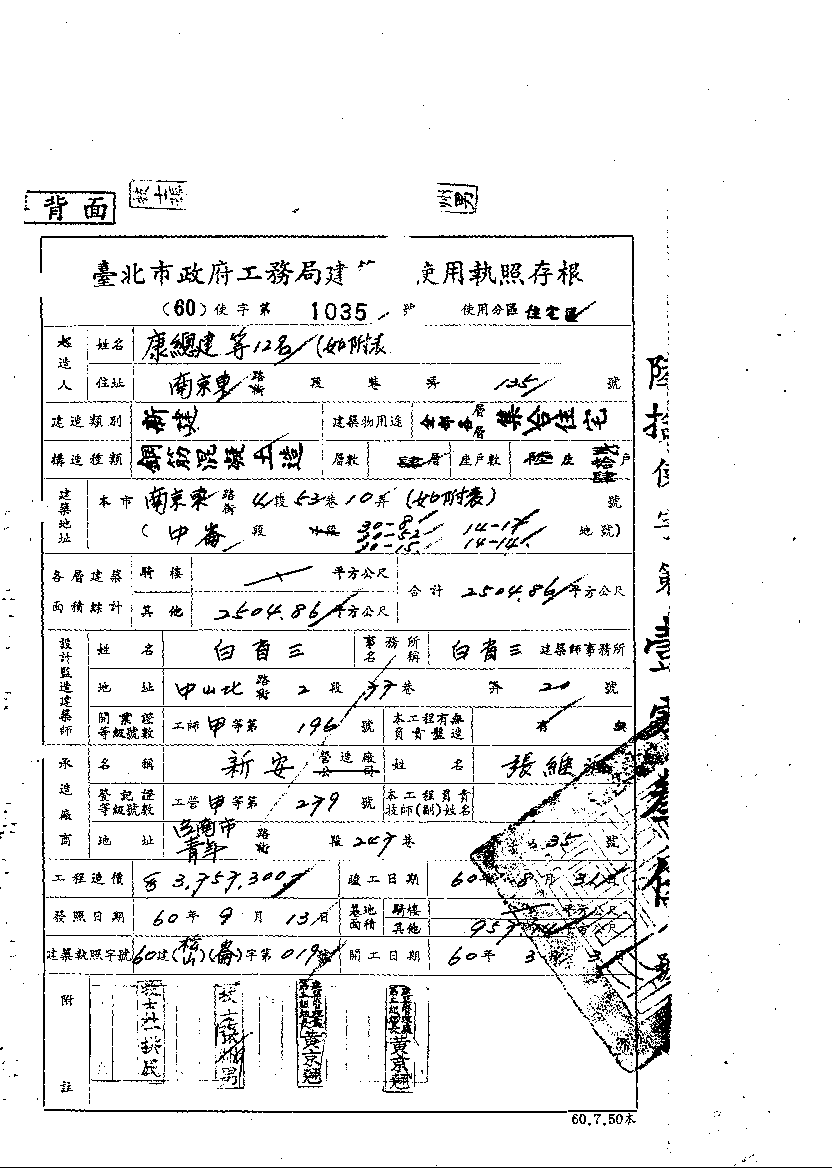 背面
臺北市政府工務局建 使用執照存根
(60)使字第 1035 號 使用分區 住宅區
起造人 姓名 康總建等12名 (如附表
住址 南京東 路街 段 巷 弄 135 號
建造類別 新建 建築物用途 全部各層層 集合住宅
構造種類 鋼筋混凝土造 層數 肆層 座戶數 座 戶
建築地址 本市 南京東 路街 4段 53巷 10弄 (如附表) 號
(中崙 段 小段 30-8 30-52 30-15 14-17 14-14 地號)
各層建築面積總計 騎樓 平方公尺 合計 2504.86 平方公尺
其他 2504.86 平方公尺
設計監造建築師 姓名 白省三 事務所名稱 白省三 建築師事務所
地址 中山北 路街 2段 77巷 弄 20 號
開業證等級號數 工師甲等第 196 號 本工程有無負責監造 有 無
承造廠商 名稱 新安 營造廠公司 姓名 張維
登記證等級號數 工營甲等第 279 號 本工程負責技師(副)姓名
地址 台南市青年 路街 段 247巷 35 號
工程造價 3,757,300 竣工日期 60年8月31日
發照日期 60年9月13日 基地面積 騎樓 平方公尺
其他 平方公尺
建築執照字號 60建(松山)(崙)字第019號 開工日期 60年3月3日
附註
黃京翹 黃京翹
60.7.50本